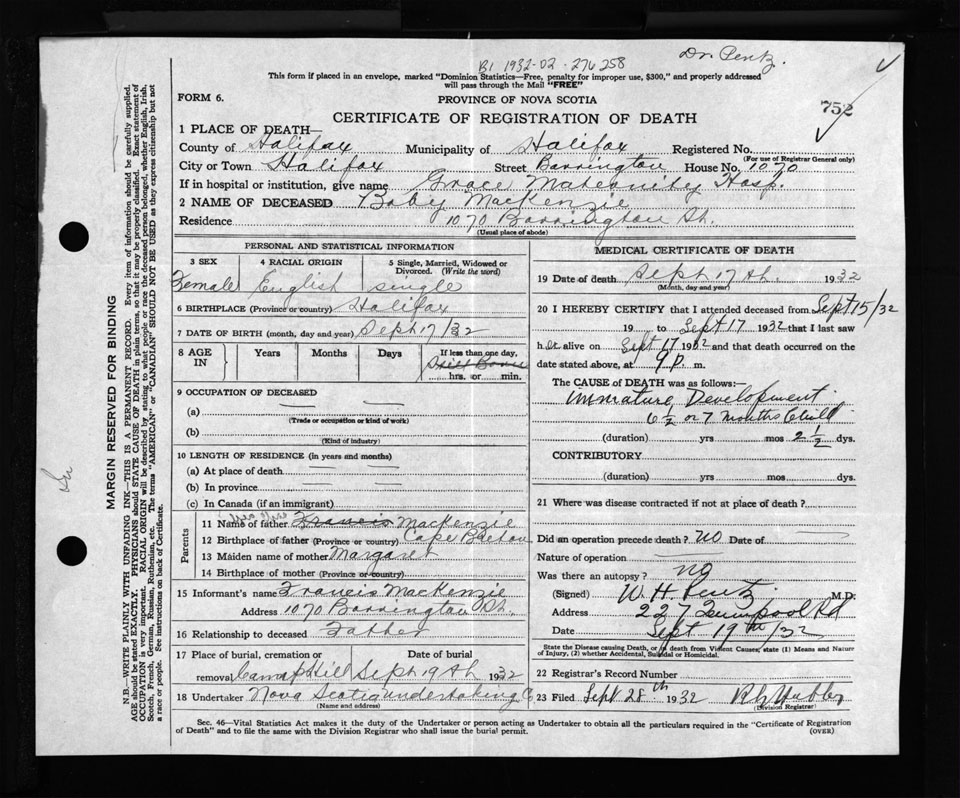 B1 1932-02-276258
Dr. Pentz.
This form if placed in an envelope, marked "Dominion Statistics—Free, penalty for improper use, $300," and properly addressed
will pass through the Mail "FREE"
FORM 6.
PROVINCE OF NOVA SCOTIA
752
CERTIFICATE OF REGISTRATION OF DEATH
1 PLACE OF DEATH—
County of Halifax Municipality of Halifax Registered No.
(For use of Registrar General only)
City or Town Halifax Street Barrington House No. 1070
If in hospital or institution, give name Grace Maternity Hosp.
2 NAME OF DECEASED Baby MacKenzie
Residence 1070 Barrington St.
(Usual place of abode)
PERSONAL AND STATISTICAL INFORMATION
3 SEX 4 RACIAL ORIGIN 5 Single, Married, Widowed or
Divorced. (Write the word)
Female English single
6 BIRTHPLACE (Province or country) Halifax
7 DATE OF BIRTH (month, day and year) Sept 17/32
8 AGE IN Years Months Days If less than one day,
Still Born
hrs. or min.
9 OCCUPATION OF DECEASED
(a)
(Trade or occupation or kind of work)
(b)
(Kind of industry)
10 LENGTH OF RESIDENCE (in years and months)
(a) At place of death
(b) In province
(c) In Canada (if an immigrant)
Parents
11 Name of father Francis MacKenzie
12 Birthplace of father (Province or country) Cape Breton
13 Maiden name of mother Margaret
14 Birthplace of mother (Province or country)
15 Informant's name Francis MacKenzie
Address 1070 Barrington St.
16 Relationship to deceased Father
17 Place of burial, cremation or Date of burial
removal Camp Hill Sept 19th 1932
18 Undertaker Nova Scotia undertaking Co
(Name and address)
MEDICAL CERTIFICATE OF DEATH
19 Date of death Sept 17th. 1932
(Month, day and year)
20 I HEREBY CERTIFY that I attended deceased from Sept 15/32
19 to Sept 17 1932 that I last saw
her alive on Sept 17 1932 and that death occurred on the
date stated above, at 9 P. m.
The CAUSE of DEATH was as follows:—
Immature Development
6½ or 7 months Child
(duration) yrs mos 2½ dys.
CONTRIBUTORY
(duration) yrs mos dys.
21 Where was disease contracted if not at place of death?
Did an operation precede death? No Date of
Nature of operation
Was there an autopsy? no
(Signed) W. H. Pentz M.D.
Address 227 Quinpool Rd
Date Sept 19th/32
State the Disease causing Death, or in death from Violent Causes, state (1) Means and Nature
of Injury, (2) whether Accidental, Suicidal or Homicidal.
22 Registrar's Record Number
23 Filed Sept 28th 1932
(Division Registrar)
Sec. 46—Vital Statistics Act makes it the duty of the Undertaker or person acting as Undertaker to obtain all the particulars required in the "Certificate of Registration
of Death" and to file the same with the Division Registrar who shall issue the burial permit.
(OVER)
MARGIN RESERVED FOR BINDING
N.B.—WRITE PLAINLY WITH UNFADING INK—THIS IS A PERMANENT RECORD. Every item of information should be carefully supplied.
AGE should be stated EXACTLY. PHYSICIANS should STATE CAUSE OF DEATH in plain terms, so that it may be properly classified. Exact statement of
OCCUPATION is very important. RACIAL ORIGIN will be described by stating to what people or race the deceased person belonged, whether English, Irish,
Scotch, French, German, Russian, Ruthenian, etc. The terms "AMERICAN" or "CANADIAN" SHOULD NOT BE USED as they express citizenship but not
a race or people. See instructions on back of Certificate.